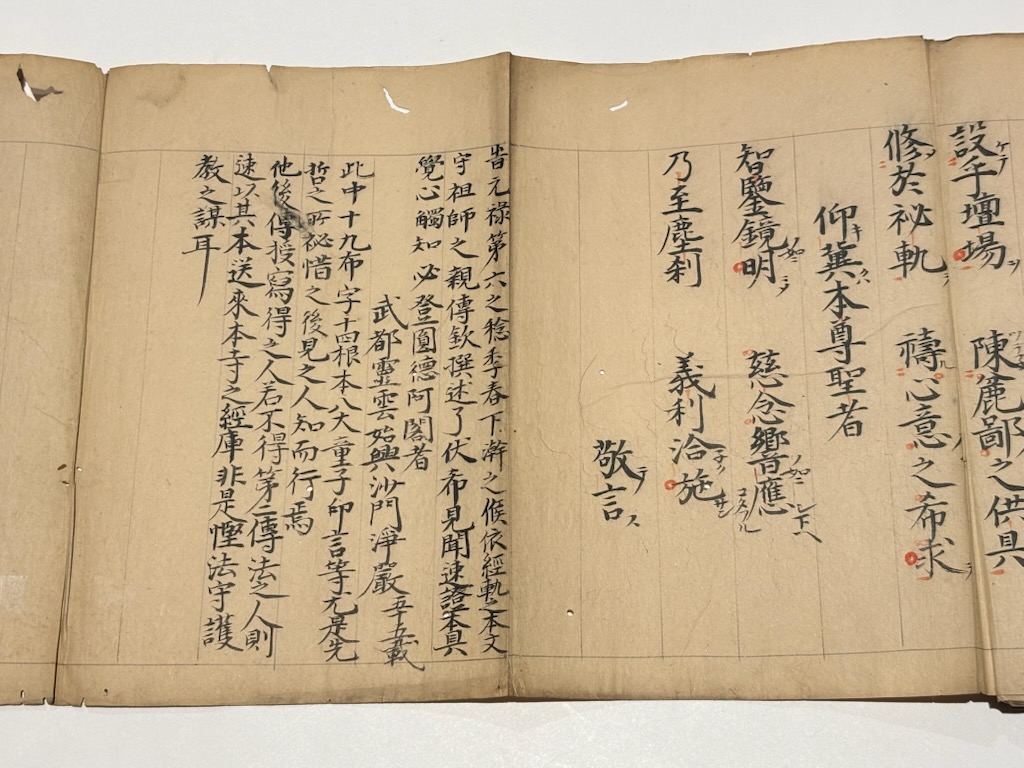 設手壇場ヲ 陳麁鄙之供具
修於祕軌ヲ 禱心意之希求ヲ
仰キ冀クハ本尊聖者
智鑒鏡明 慈念響應
乃至塵刹 義利洽施
敬言
旹元祿第六之稔季春下澣之候依經軌之本文
守祖師之親傳欽撰述了伏希見聞速諮本具
覺心觸知必登圓德阿閣者
武都靈雲始興沙門淨嚴五十五載
此中十九布字十四根本八大童子印言等尤是先
哲之所祕惜之後見之人知而行焉
他後傳授寫得之人若不得第二傳法之人則
速以其本送來本寺之經庫非是慳法守護
教之謀耳